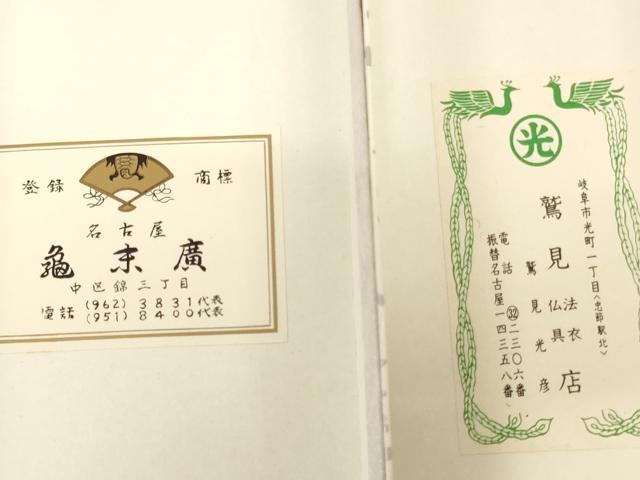 登録 商標
名古屋
龜末廣
中区錦三丁目
電話 (962) 3831代表
(951) 8400代表
光
岐阜市光町一丁目(忠節駅北)
鷲見法衣仏具店
鷲見光彦
電話 ㉜二三〇六番
振替名古屋一四三五八番